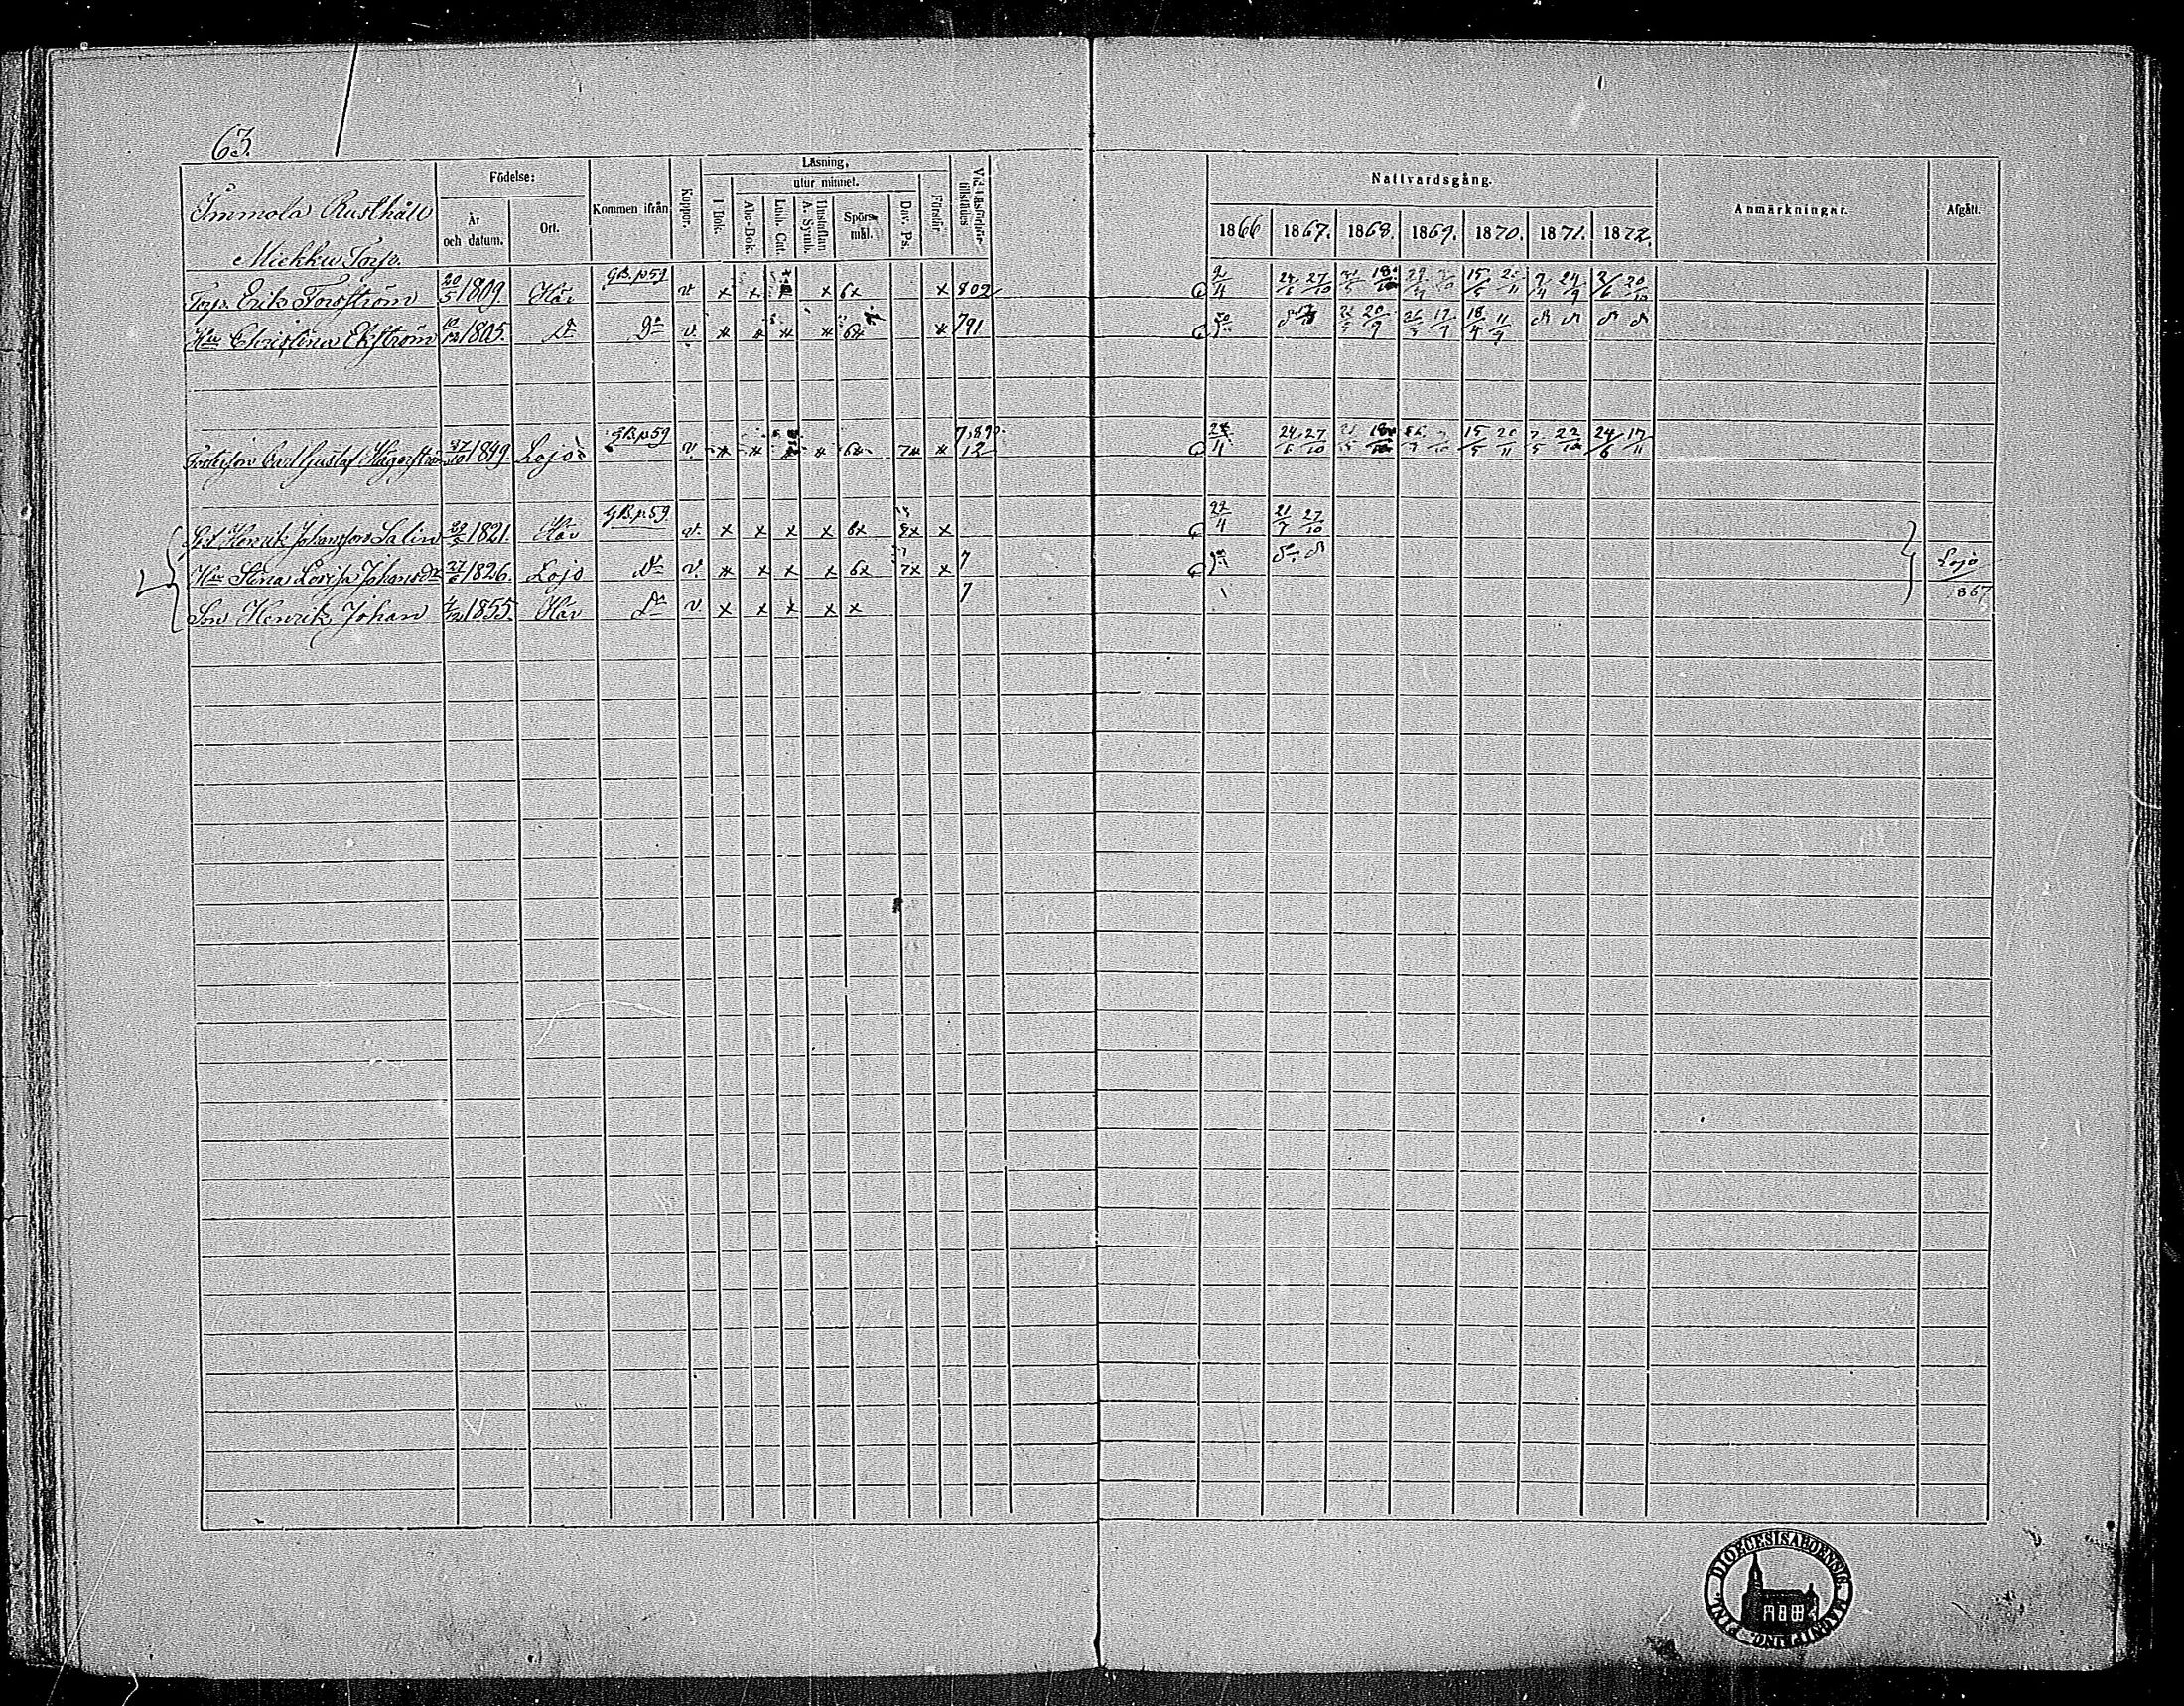 63.
Immola Rusthåll
Miekku Torp.
Födelse:
År och datum.
Ort.
Kommen ifrån
Koppor.
Läsning,
I Bok.
utur minnet.
Abc-Bok.
Luth. Cat.
Hustaflan A. Symb.
Spörsmål.
Dav. Ps.
Förstår
Vid Läsförhör tillstädes
Nattvardsgång.
1866 1867. 1868. 1869. 1870. 1871. 1872.
Anmärkningar.
Afgått.
Torp. Erik Forsström 20/5 1809. Här G.B. p 59 v x x x x 6x x 802 9/11 24/6 27/10 18/10 15/5 20/11 24/9 2/6 20/10
Hu Christina Ekström 10/12 1805. Do Do v. x x x x 6x x 791 20/9 17/7 18/4 11/9
Fosterson Carl Gustaf Hägerström 27/10 1849 Lojo G.B. p 59 v. x x x x 6x 7x x 7,890. 12 24/6 27/10 18/10 15/5 20/11 7/5 22/10 24/6 17/11
Gst Henrik Johansson Salin 22/5 1821. Här G.B. p. 59 v. x x x x 6x 8x x 22/4 21/7 27/10
Hu Stina Lovisa Johansdr 27/6 1826. Lojo Do v. x x x x 6x 7x x 7 Lojo
Son Henrik Johan 4/12 1855. Här Do v x x x x x 7 1867
DIOECESIS ABOENSIS MAGNI PRINC. FINL.